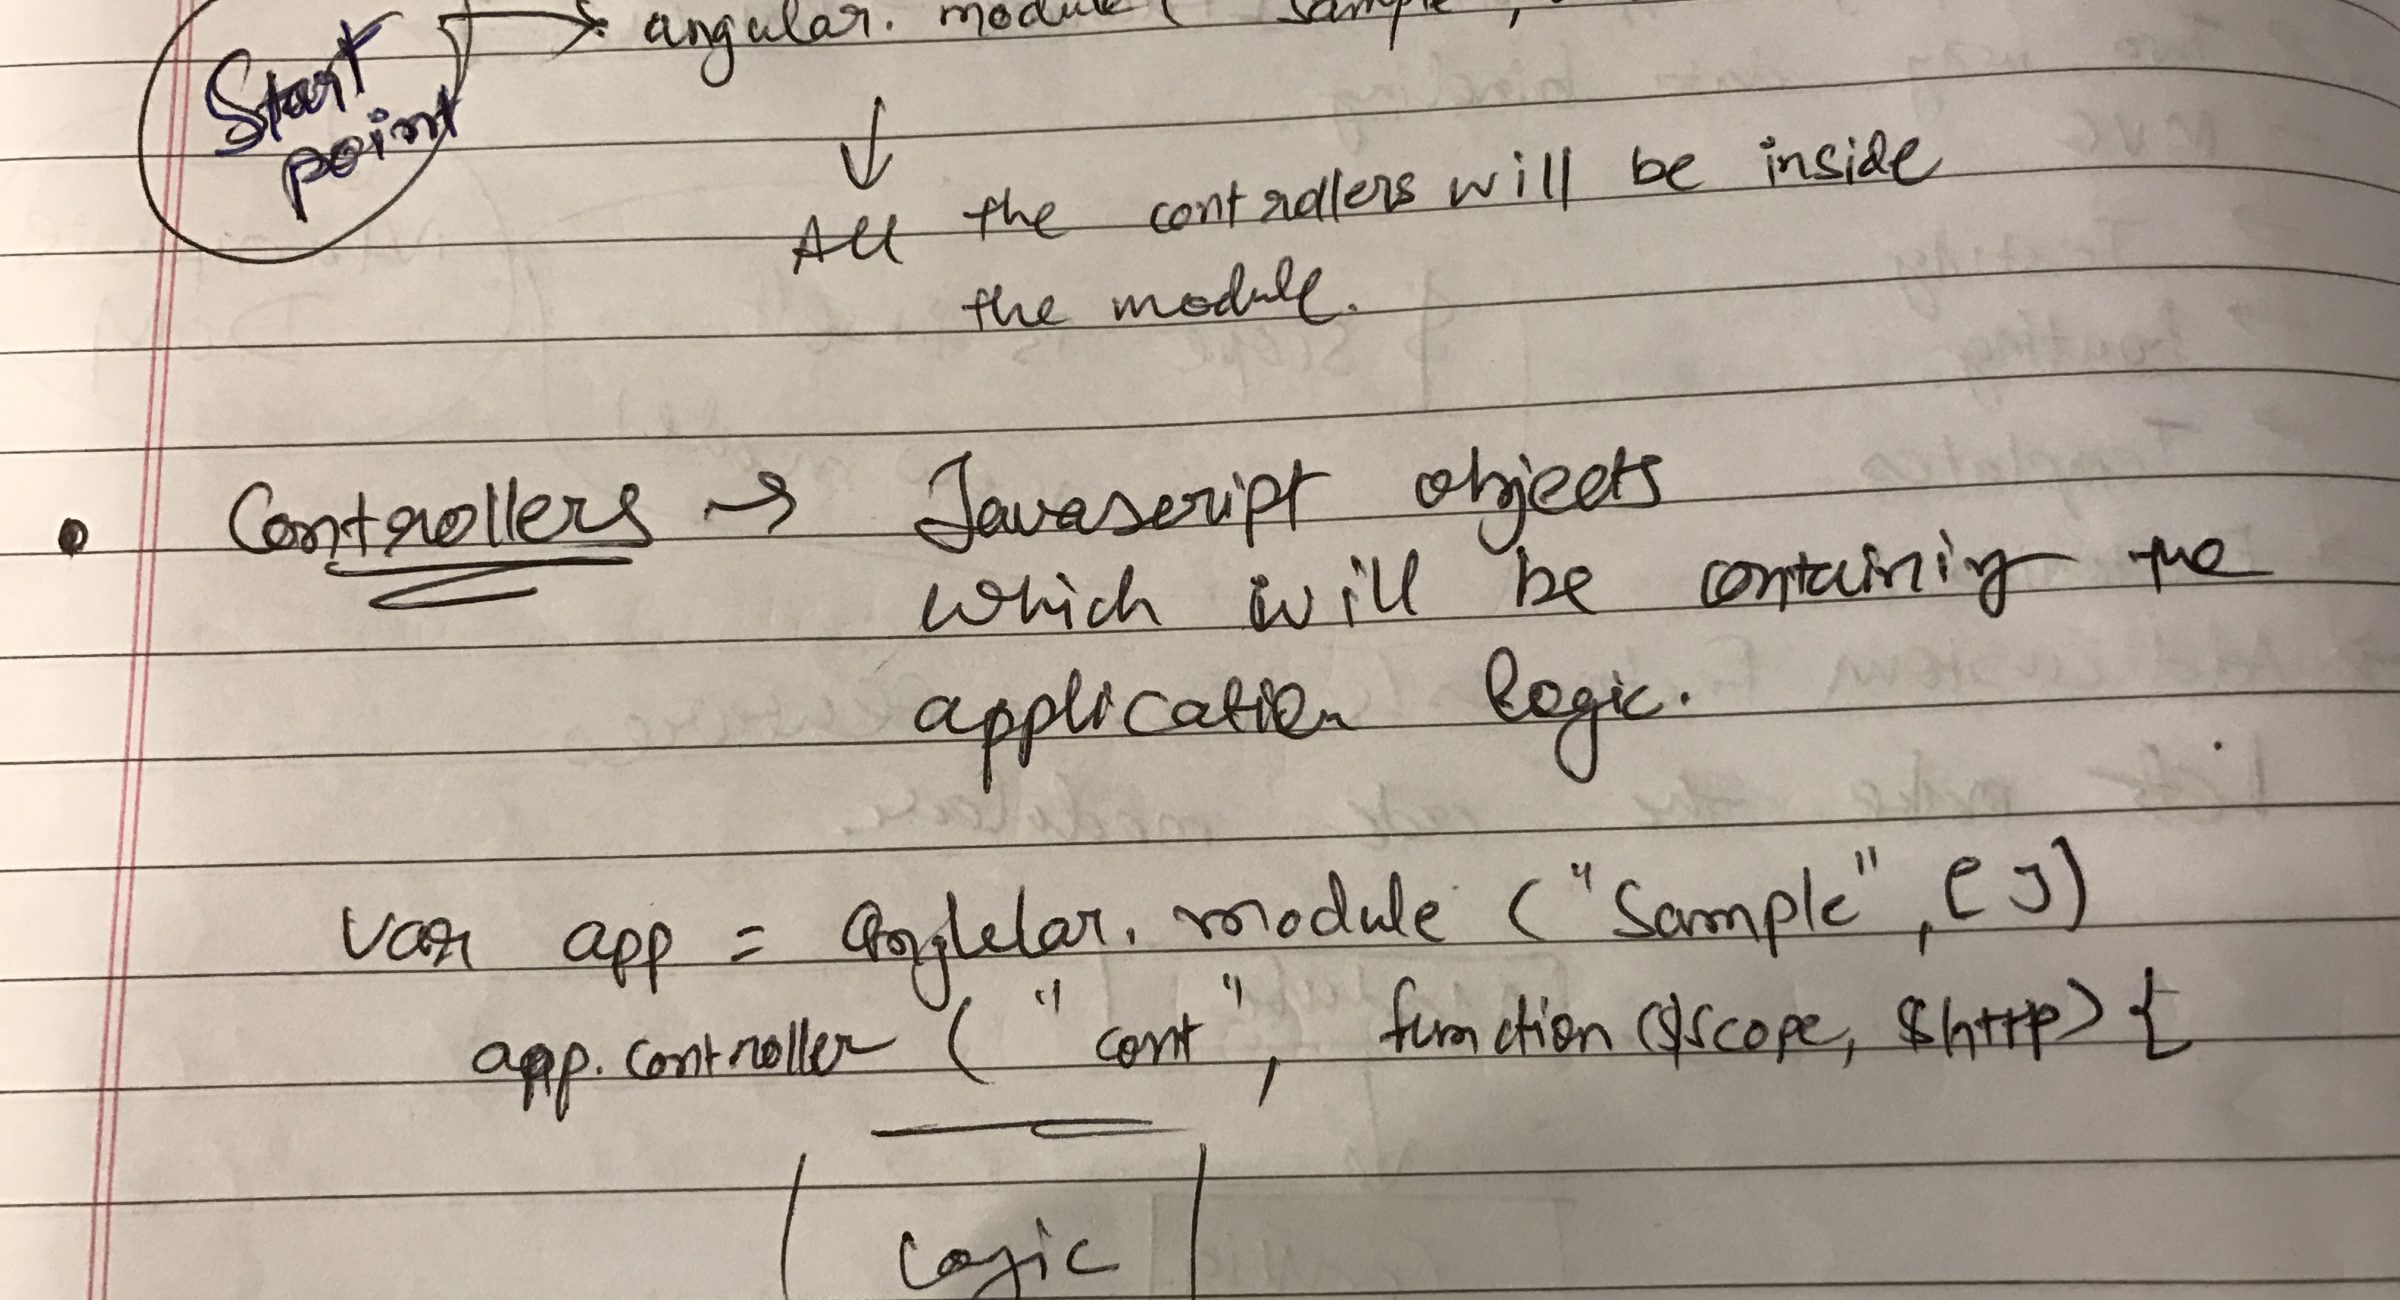 Start
point
angular. module ( "Sample",
All the controllers will be inside
the module.
• Controllers → Javascript objects
which will be containing the
application logic.
var app = Angular. module ("Sample", [])
app.controller ( "cont", function ($scope, $http) {
Logic